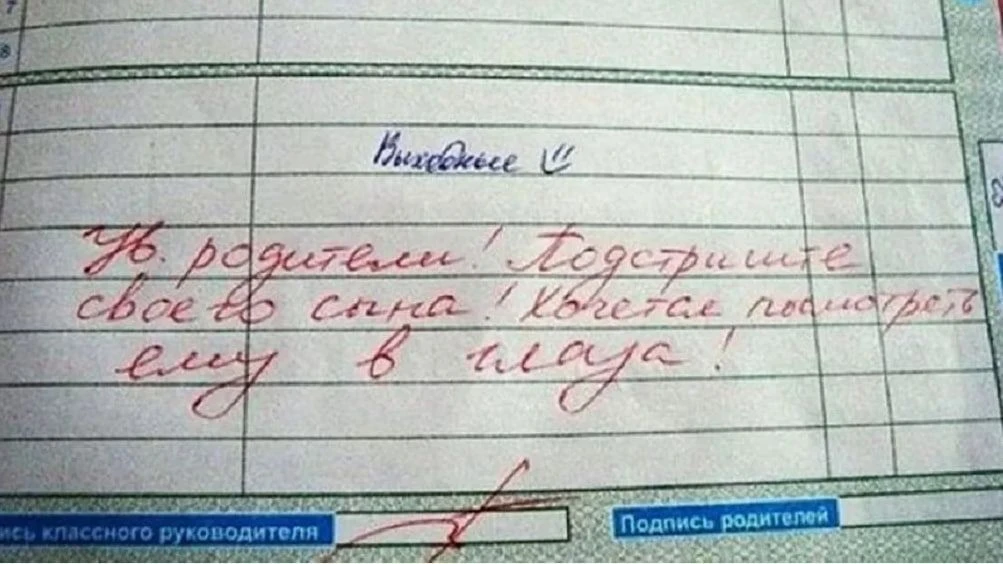 7
8
Выходные
Ув. родители! Подстригите
своего сына! Хочется посмотреть
ему в глаза!
ись классного руководителя
Подпись родителей